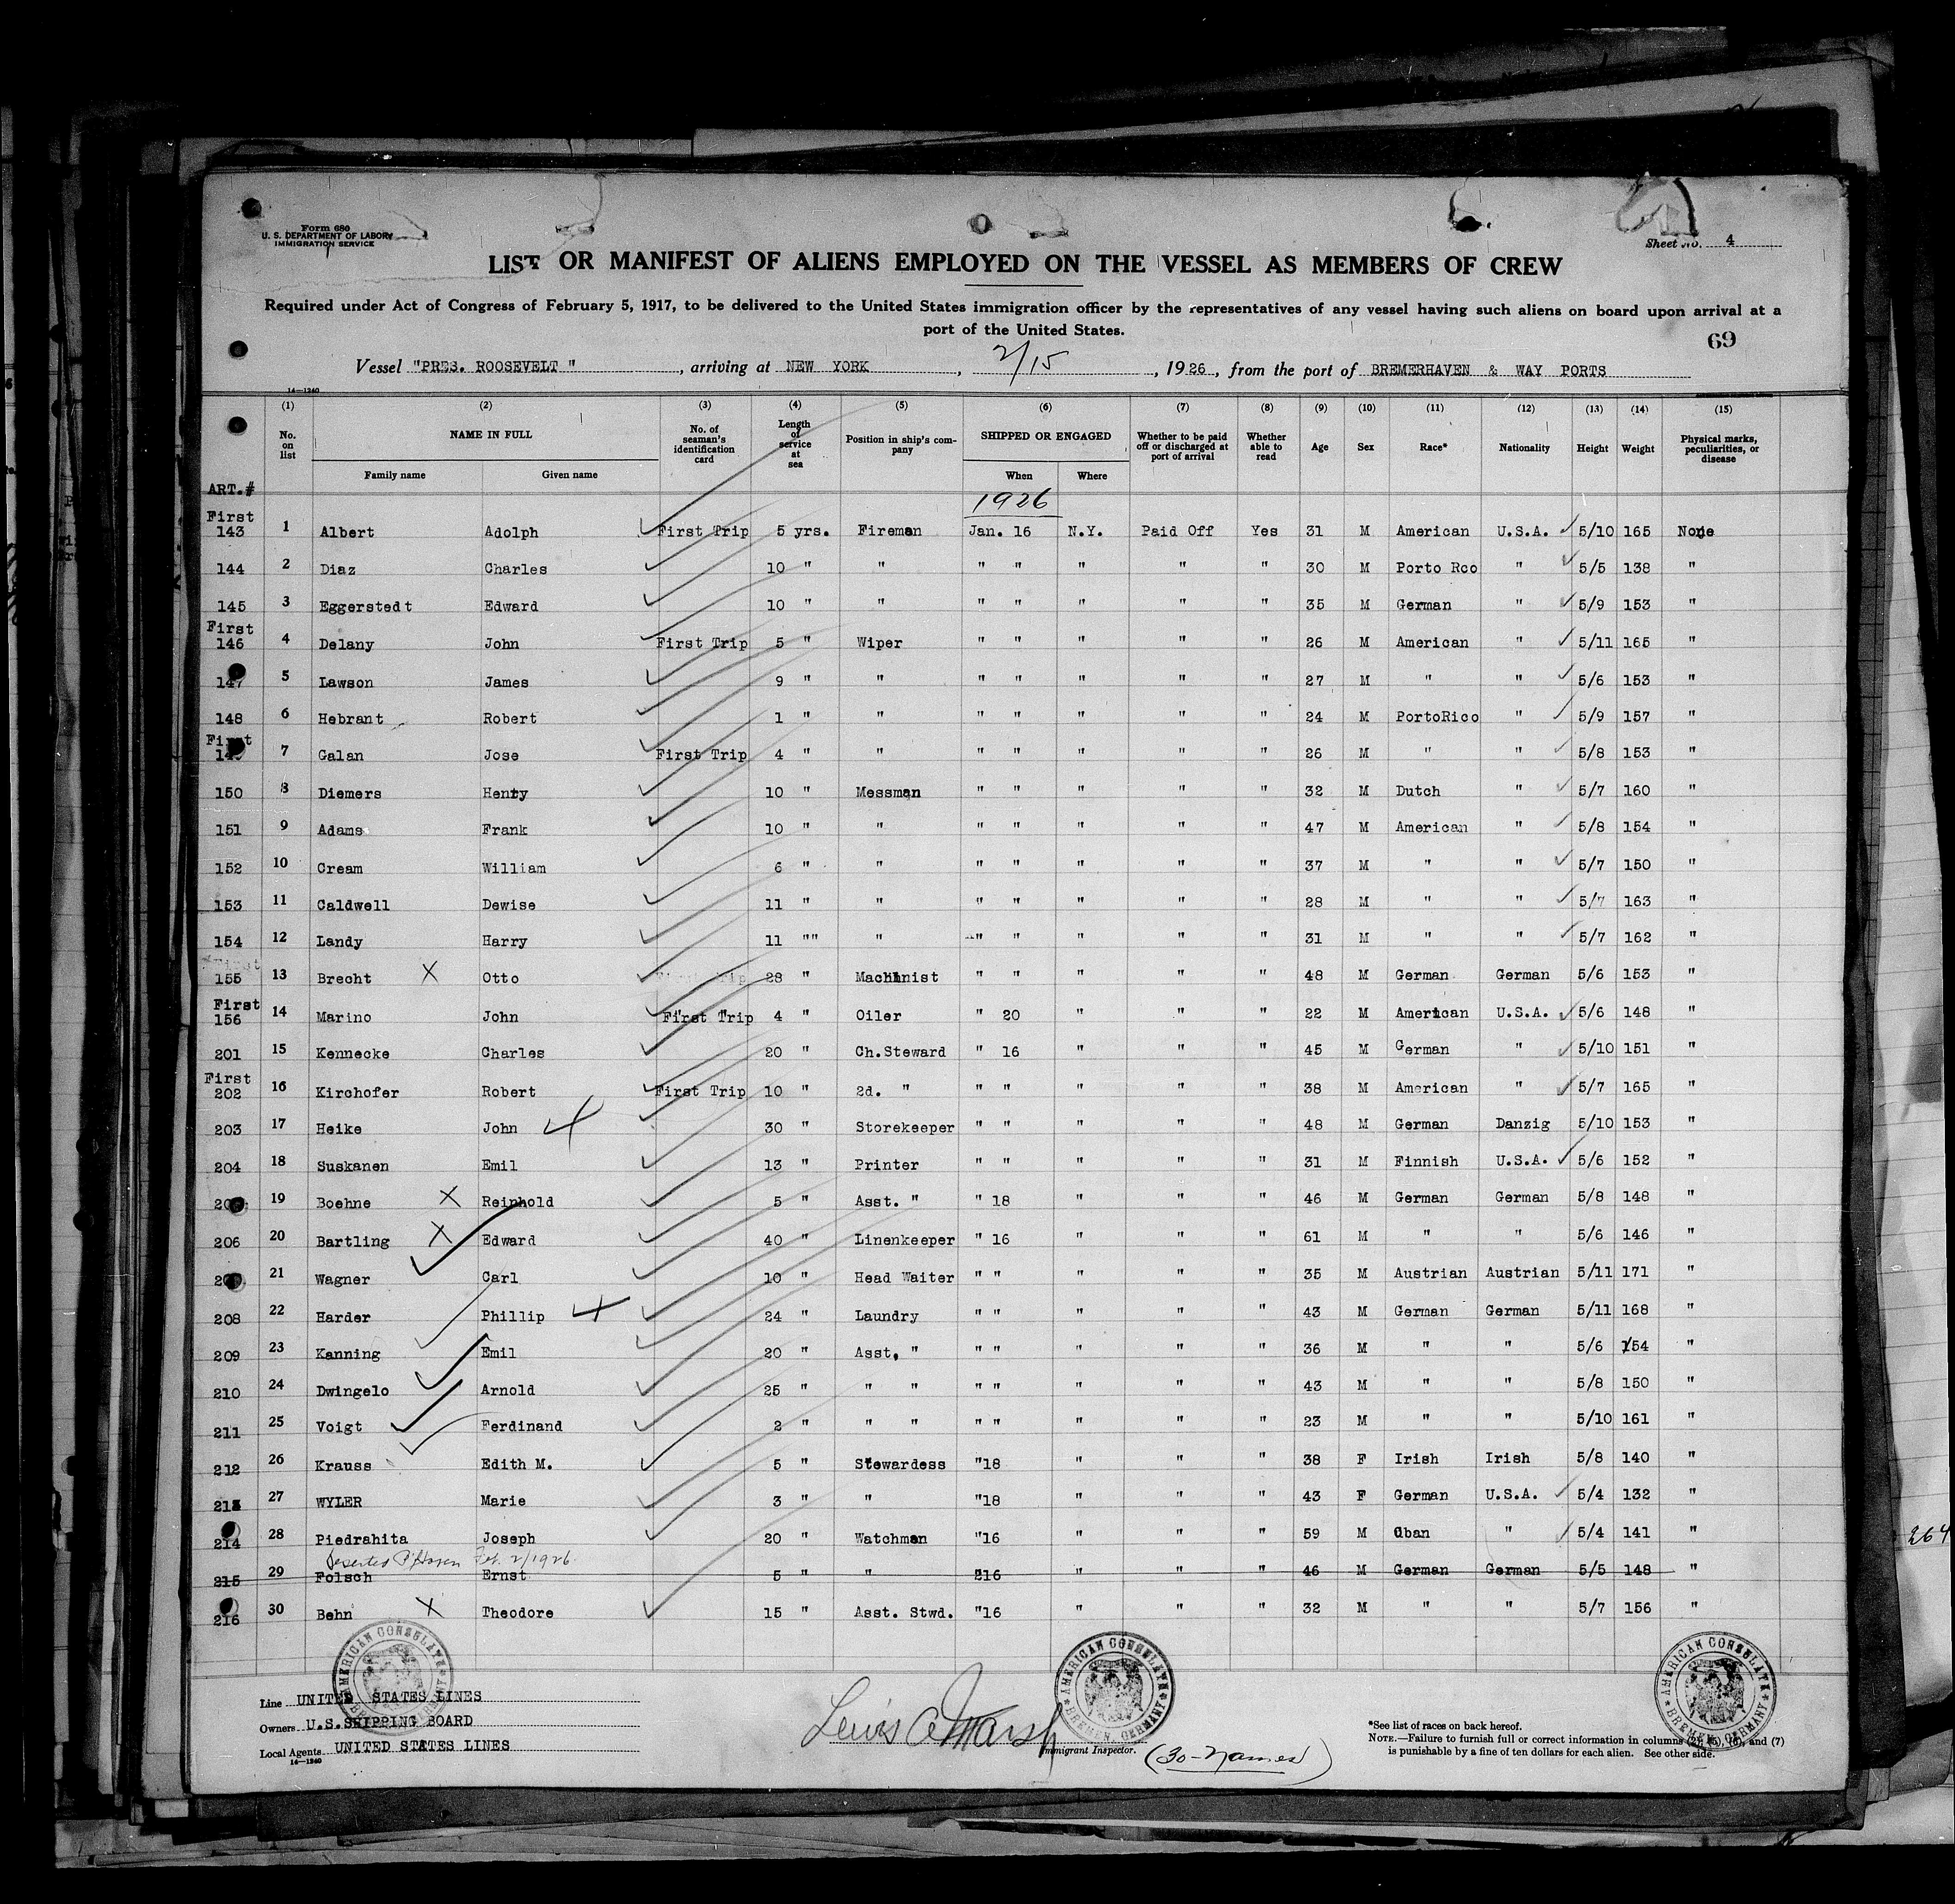 Form 680
U. S. DEPARTMENT OF LABOR
IMMIGRATION SERVICE
Sheet No. 4
LIST OR MANIFEST OF ALIENS EMPLOYED ON THE VESSEL AS MEMBERS OF CREW
Required under Act of Congress of February 5, 1917, to be delivered to the United States immigration officer by the representatives of any vessel having such aliens on board upon arrival at a
port of the United States.
69
Vessel "PRES. ROOSEVELT ", arriving at NEW YORK, 2/15, 1926, from the port of BREMERHAVEN & WAY PORTS
14—1240
(1) (2) (3) (4) (5) (6) (7) (8) (9) (10) (11) (12) (13) (14) (15)
No. on list NAME IN FULL No. of seaman's identification card Length of service at sea Position in ship's company SHIPPED OR ENGAGED Whether to be paid off or discharged at port of arrival Whether able to read Age Sex Race* Nationality Height Weight Physical marks, peculiarities, or disease
Family name Given name When Where
ART.# 1926
First
143 1 Albert Adolph First Trip 5 yrs. Fireman Jan. 16 N.Y. Paid Off Yes 31 M American U.S.A. 5/10 165 None
144 2 Diaz Charles 10 " " " " " " " 30 M Porto Rco " 5/5 138 "
145 3 Eggerstedt Edward 10 " " " " " " " 35 M German " 5/9 153 "
First
146 4 Delany John First Trip 5 " Wiper " " " " " 26 M American " 5/11 165 "
147 5 Lawson James 9 " " " " " " " 27 M " " 5/6 153 "
148 6 Hebrant Robert 1 " " " " " " " 24 M PortoRico " 5/9 157 "
First
149 7 Galan Jose First Trip 4 " " " " " " " 26 M " " 5/8 153 "
150 8 Diemers Henry 10 " Messman " " " " " 32 M Dutch " 5/7 160 "
151 9 Adams Frank 10 " " " " " " " 47 M American " 5/8 154 "
152 10 Cream William 6 " " " " " " " 37 M " " 5/7 150 "
153 11 Caldwell Dewise 11 " " " " " " " 28 M " " 5/7 163 "
154 12 Landy Harry 11 "" " " " " " " 31 M " " 5/7 162 "
First
155 13 Brecht X Otto First Trip 28 " Machinist " " " " " 48 M German German 5/6 153 "
First
156 14 Marino John First Trip 4 " Oiler " 20 " " " 22 M American U.S.A. 5/6 148 "
201 15 Kennecke Charles 20 " Ch.Steward " 16 " " " 45 M German " 5/10 151 "
First
202 16 Kirchofer Robert First Trip 10 " 2d. " " " " " " 38 M American " 5/7 165 "
203 17 Heike John X 30 " Storekeeper " " " " " 48 M German Danzig 5/10 153 "
204 18 Suskanen Emil 13 " Printer " " " " " 31 M Finnish U.S.A. 5/6 152 "
19 Boehne X Reinhold 5 " Asst. " " 18 " " " 46 M German German 5/8 148 "
206 20 Bartling X Edward 40 " Linenkeeper " 16 " " " 61 M " " 5/6 146 "
21 Wagner Carl 10 " Head Waiter " " " " " 35 M Austrian Austrian 5/11 171 "
208 22 Harder Phillip X 24 " Laundry " " " " " 43 M German German 5/11 168 "
209 23 Kanning Emil 20 " Asst. " " " " " " 36 M " " 5/6 154 "
210 24 Dwingelo Arnold 25 " " " " " " " " 43 M " " 5/8 150 "
211 25 Voigt Ferdinand 2 " " " " " " " " 23 M " " 5/10 161 "
212 26 Krauss Edith M. 5 " Stewardess "18 " " " 38 F Irish Irish 5/8 140 "
213 27 WYLER Marie 3 " " "18 " " " 43 F German U.S.A. 5/4 132 "
214 28 Piedrahita Joseph 20 " Watchman "16 " " " 59 M Cuban " 5/4 141 "
Deserted B'Haven Feb. 2/1926
215 29 Folsch Ernst 5 " " "16 " " " 46 M German German 5/5 148 "
216 30 Behn X Theodore 15 " Asst. Stwd. "16 " " " 32 M " " 5/7 156 "
AMERICAN CONSULATE BREMEN, GERMANY
AMERICAN CONSULATE BREMEN, GERMANY
AMERICAN CONSULATE BREMEN, GERMANY
Line UNITED STATES LINES
Owners U.S.SHIPPING BOARD
Local Agents UNITED STATES LINES
14—1240
Lewis A Marsh
Immigrant Inspector.
(30-Names)
*See list of races on back hereof.
NOTE.—Failure to furnish full or correct information in columns (2), (5), (6), and (7)
is punishable by a fine of ten dollars for each alien. See other side.
264